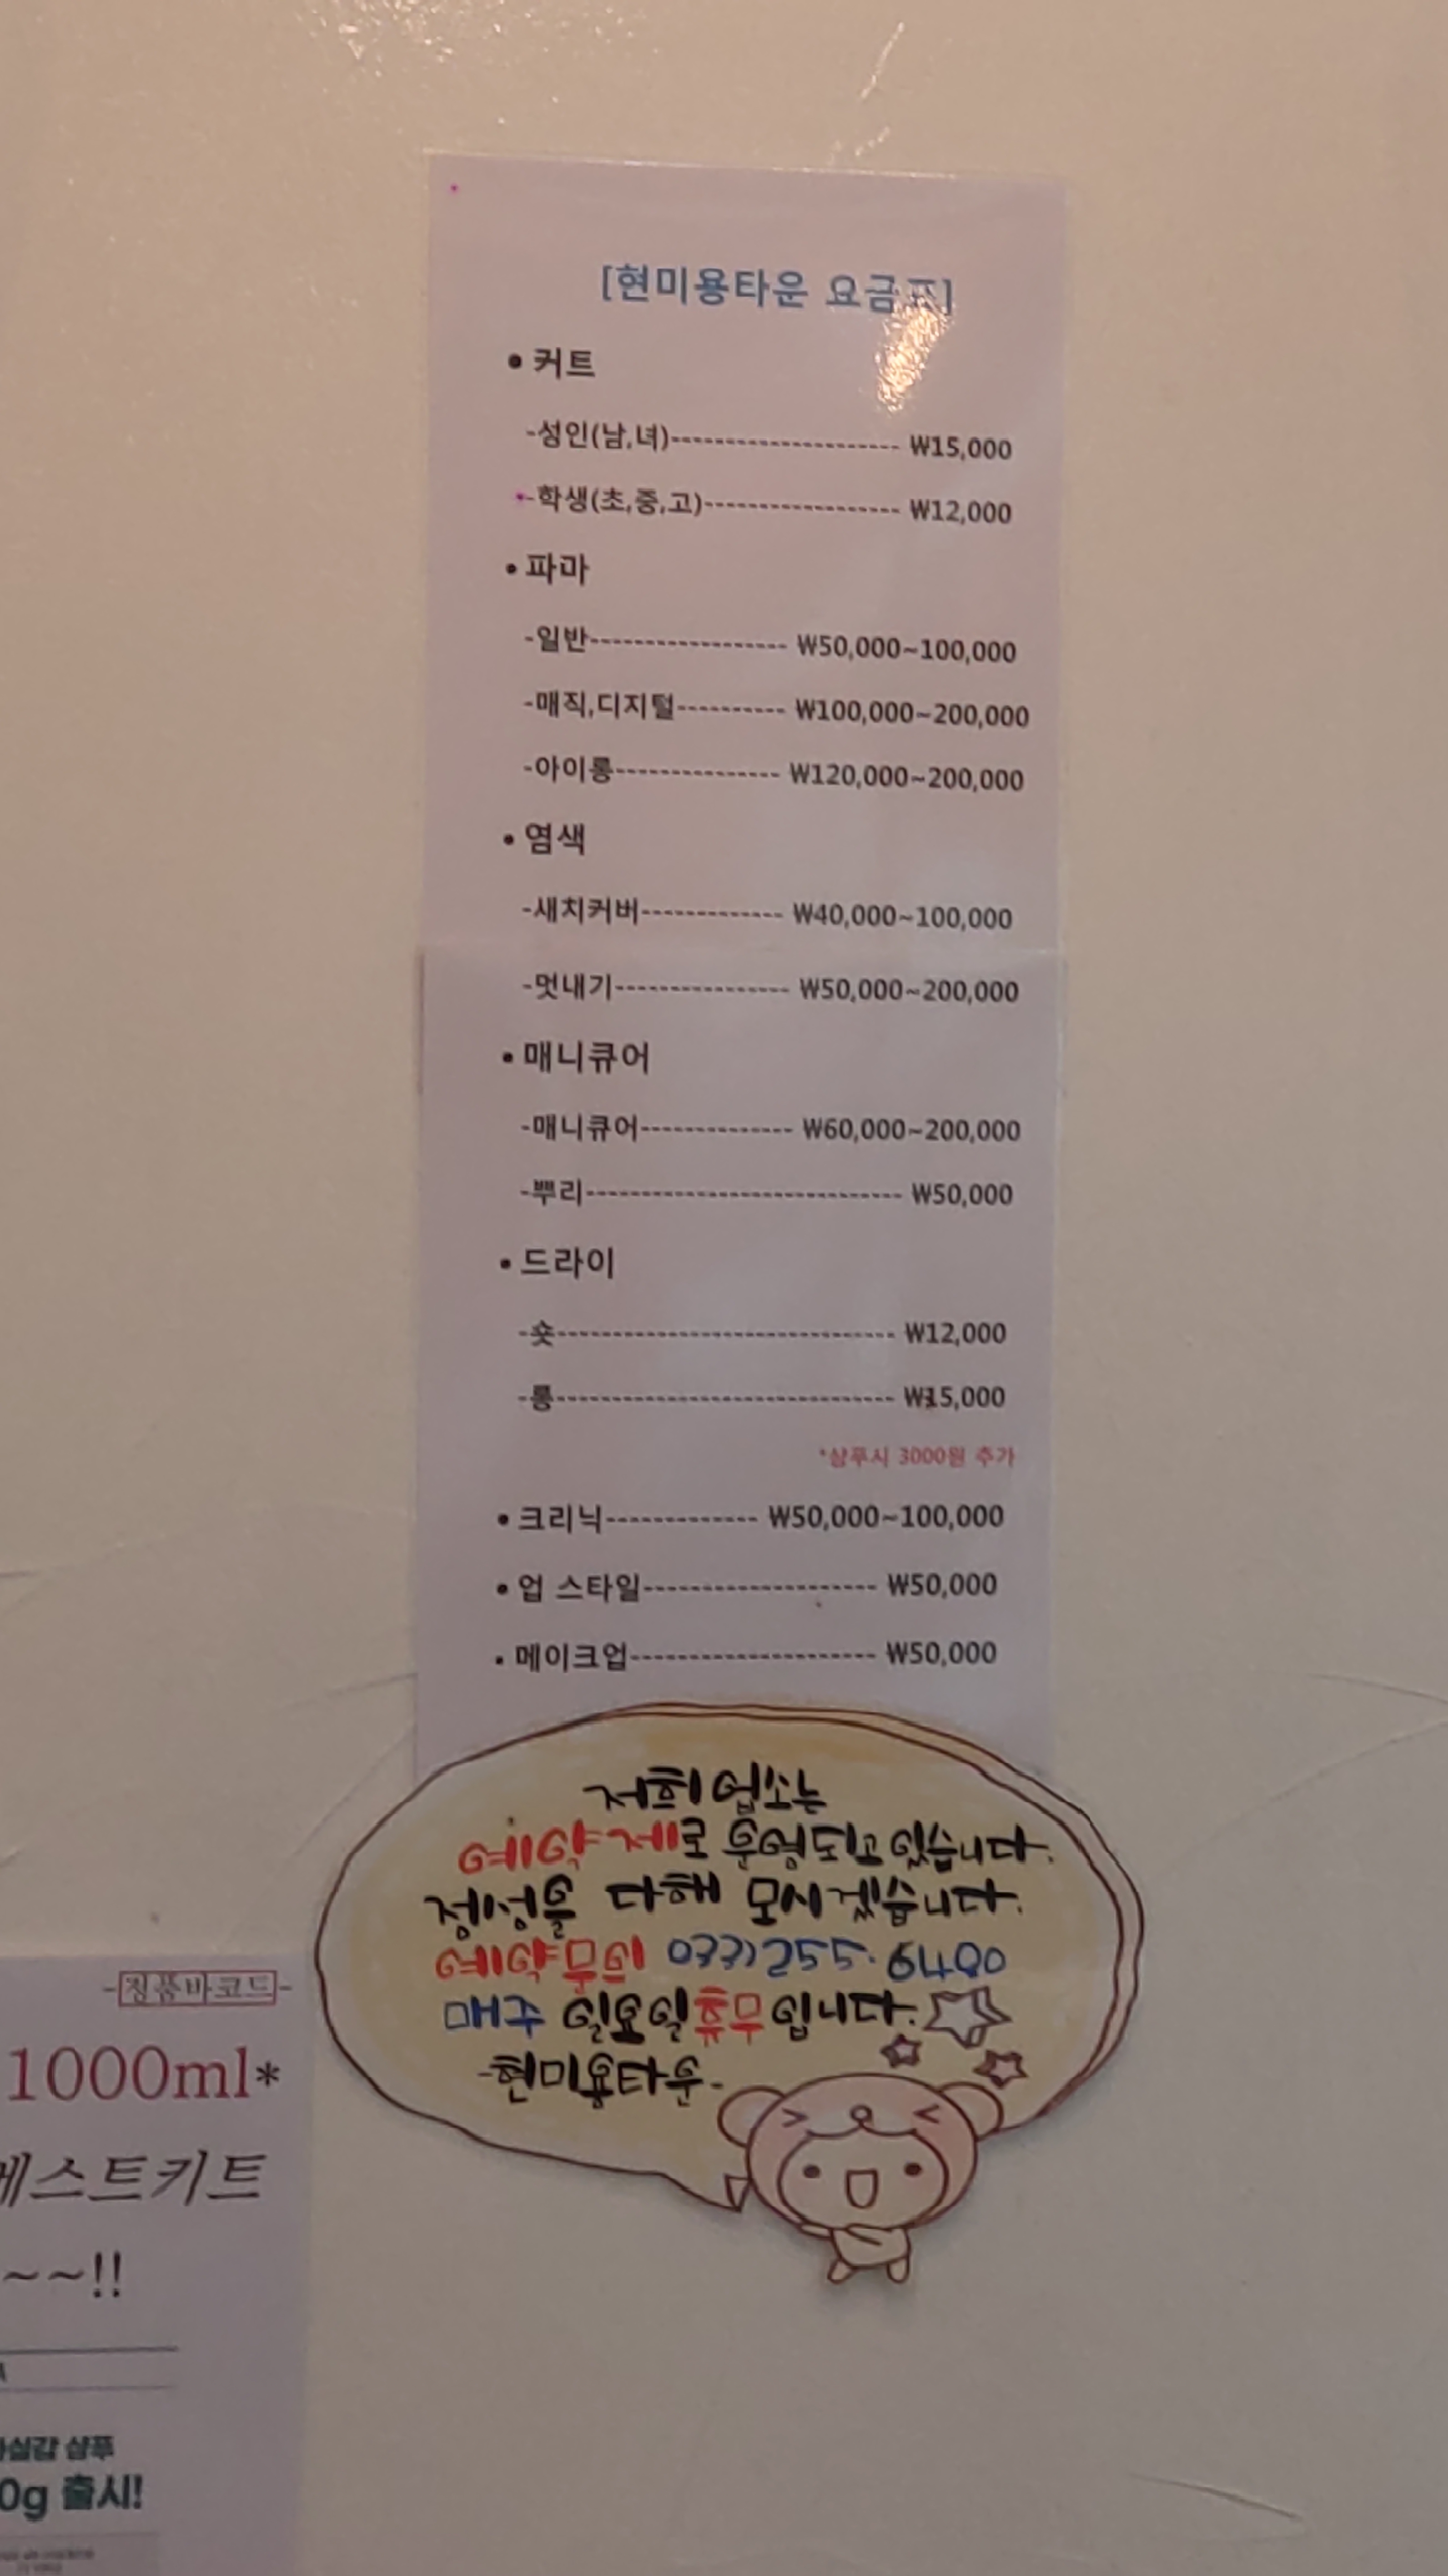 [현미용타운 요금표]
• 커트
-성인(남,녀)--------------------- ₩15,000
-학생(초,중,고)------------------ ₩12,000
• 파마
-일반------------------ ₩50,000~100,000
-매직,디지털---------- ₩100,000~200,000
-아이롱--------------- ₩120,000~200,000
• 염색
-새치커버------------- ₩40,000~100,000
-멋내기---------------- ₩50,000~200,000
• 매니큐어
-매니큐어-------------- ₩60,000~200,000
-뿌리----------------------------- ₩50,000
• 드라이
-숏------------------------------- ₩12,000
-롱------------------------------- ₩15,000
*샴푸시 3000원 추가
• 크리닉------------- ₩50,000~100,000
• 업 스타일--------------------- ₩50,000
• 메이크업---------------------- ₩50,000
저희 업소는
예약제로 운영되고 있습니다.
정성을 다해 모시겠습니다.
예약문의 033)255.6480
매주 일요일휴무입니다.
-현미용타운-
-정품바코드-
1000ml*
스트키트
~~!!
실감 샴푸
0g 출시!